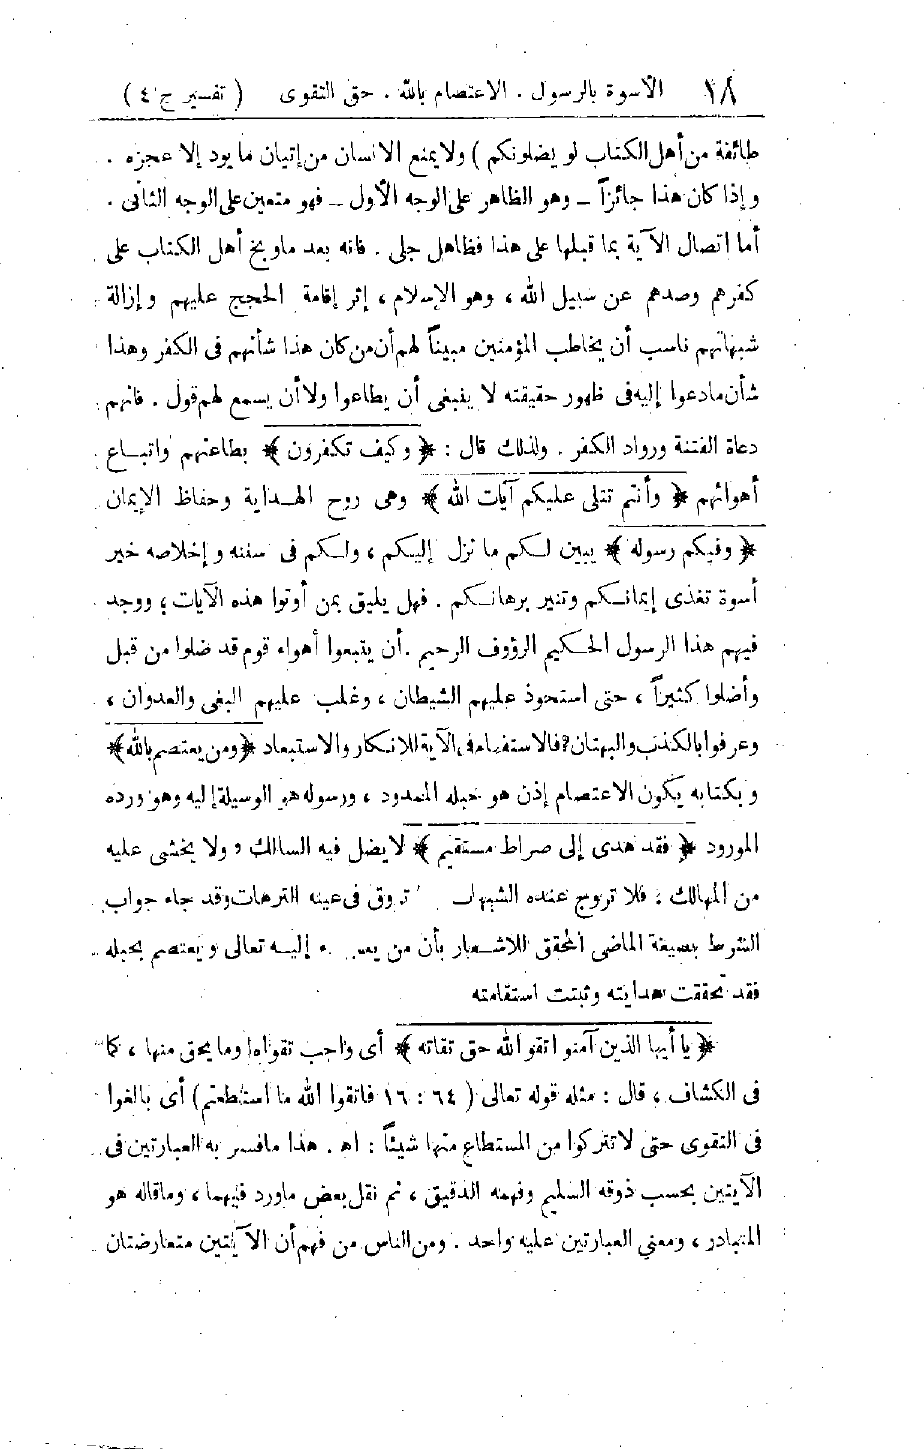 ١٨ الأسوة بالرسول . الاعتصام بالله . حق التقوى ( تفسير ج ٤ )
طائفة من أهل الكتاب لو يضلونكم ) ولا يمنع الانسان من إتيان ما يود إلا عجزه .
وإذا كان هذا جائزاً ــ وهو الظاهر على الوجه الأول ــ فهو متعين على الوجه الثانى .
أما اتصال الآية بما قبلها على هذا فظاهر جلى . فانه بعد ما وبخ أهل الكتاب على
كفرهم وصدهم عن سبيل الله ، وهو الإسلام ، إثر إقامة الحجج عليهم وإزالة
شبهاتهم ناسب أن يخاطب المؤمنين مبيناً لهم أن من كان هذا شأنهم فى الكفر وهذا
شأن ما دعوا إليه فى ظهور حقيقته لا ينبغى أن يطاعوا ولا أن يسمع لهم قول . فانهم
دعاة الفتنة ورواد الكفر . ولذلك قال : ﴿ وكيف تكفرون ﴾ بطاعتهم واتباع
أهوائهم ﴿ وأنتم تتلى عليكم آيات الله ﴾ وهى روح الهداية وحفاظ الإيمان
﴿ وفيكم رسوله ﴾ يبين لكم ما نزل إليكم ، ولكم فى سننه وإخلاصه خير
أسوة تغذى إيمانكم وتنير برهانكم . فهل يليق بمن أوتوا هذه الآيات ؛ ووجد
فيهم هذا الرسول الحكيم الرؤوف الرحيم . أن يتبعوا أهواء قوم قد ضلوا من قبل
وأضلوا كثيراً ، حتى استحوذ عليهم الشيطان ، وغلب عليهم البغى والعدوان ،
وعرفوا بالكذب والبهتان ؟ فالاستفهام فى الآية للانكار والاستبعاد ﴿ ومن يعتصم بالله ﴾
وبكتابه يكون الاعتصام إذن هو حبله الممدود ، ورسوله هو الوسيلة إليه وهو ورده
المورود ﴿ فقد هدى إلى صراط مستقيم ﴾ لا يضل فيه السالك ، ولا يخشى عليه
من المهالك ؛ فلا تروج عنده الشبهات تروق فى عينه الترهات وقد جاء جواب
الشرط بصيغة الماضى المحقق للاشعار بأن من إليه تعالى ويعتصم بحبله
فقد تحققت هدايته وثبتت استقامته
﴿ يا أيها الذين آمنو اتقو الله حق تقاته ﴾ أى واجب تقواه ا وما يحق منها ، كما
فى الكشاف ، قال : مثله قوله تعالى ( ٦٤ : ١٦ فاتقوا الله ما استطعتم ) أى بالغوا
فى التقوى حتى لا تتركوا من المستطاع منها شيئاً : اه . هذا ما فسر به العبارتين فى
الآيتين بحسب ذوقه السليم وفهمه الدقيق ، ثم نقل بعض ما ورد فيهما ، وما قاله هو
المتبادر ، ومعنى العبارتين عليه واحد . ومن الناس من فهم أن الآيتين متعارضتان